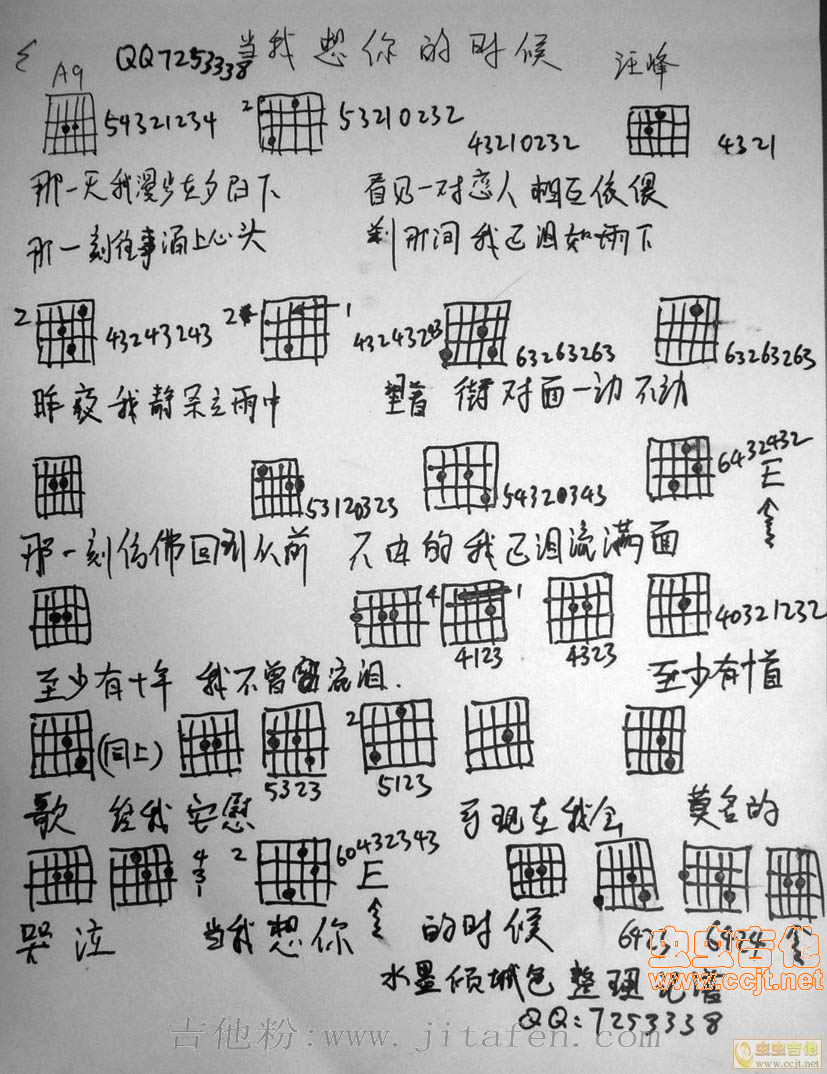 QQ7253338 当我想你的时候 汪峰
A9
54321234 2 53210232 43210232 4321
那一天我漫步在夕阳下 看见一对恋人相互依偎
那一刻往事涌上心头 刹那间我已泪如雨下
2 43243243 2 1 43243243 63263263 63263263
昨夜我静呆立雨中 望着街对面一动不动
53120323 54320343 6432432 E
那一刻仿佛回到从前 不由的我已泪流满面
4 1 4123 4323 40321232
至少有十年 我不曾流泪. 至少有十首
(同上) 5323 2 5123
歌 给我安慰 可现在我会 莫名的
4 3 1 2 60432343 E
哭泣 当我想你 的时候 6423 6424
水墨倾城色 整理记谱
QQ:7253338
虫虫吉他
www.ccjt.net
吉他粉:www.jitafen.com
虫虫吉他
www.ccjt.net